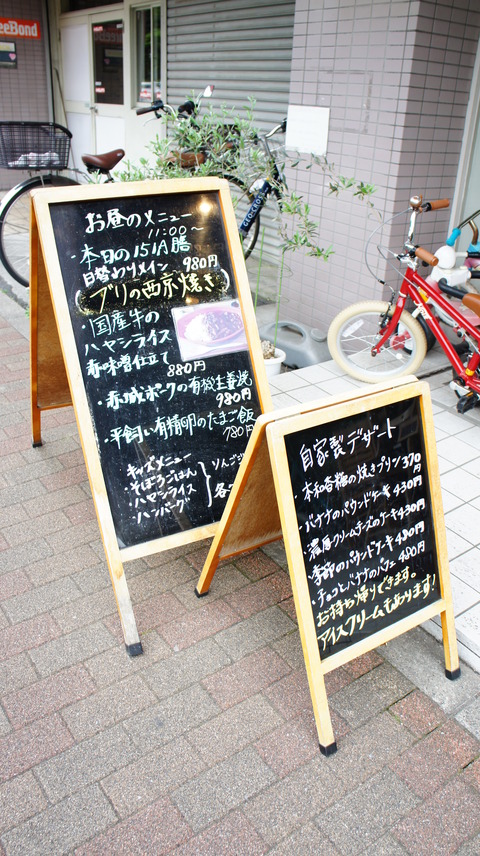 eeBond
GEOCROSS
お昼のメニュー
11:00〜
・本日の151A膳
日替わりメイン 980円
(ブリの西京焼き)
・国産牛の
ハヤシライス
赤味噌仕立て
880円
・赤城ポークの有機生姜焼
980円
・平飼い有精卵のたまご飯
780円
キッズメニュー
・そぼろごはん
・ハヤシライス
・ハンバーグ
りんご
各
自家製デザート
・本和香糖の焼きプリン 370円
・バナナのパウンドケーキ 430円
・濃厚クリームチーズのケーキ 430円
・季節のパウンドケーキ 480円
・チョコとバナナのパフェ 480円
お持ち帰りできます。
アイスクリームもあります!